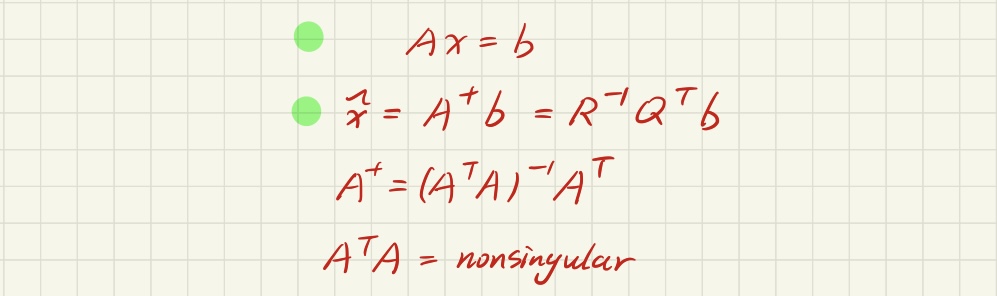 Ax = b
x̂ = A⁺b = R⁻¹Qᵀb
A⁺ = (AᵀA)⁻¹Aᵀ
AᵀA = nonsingular